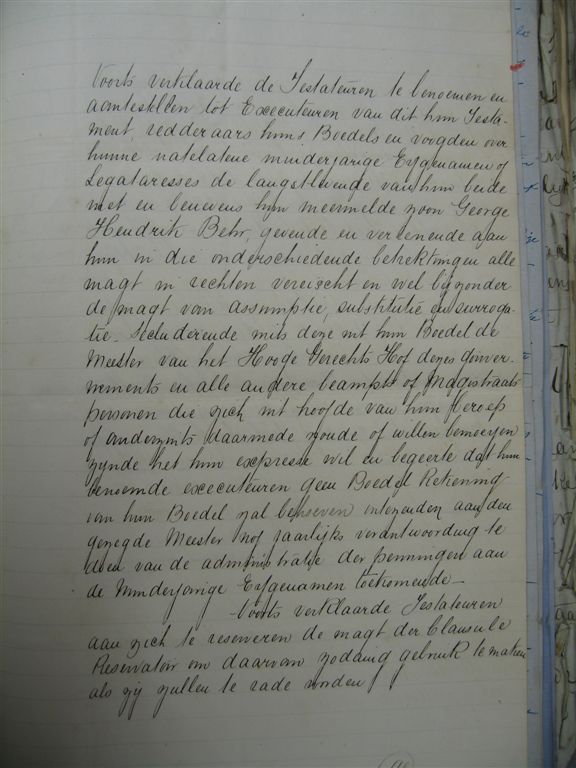 Voorts verklaarde de Testateuren te benoemen en
aantestellen tot Executeuren van dit hun Testa-
ment, redderaars huns Boedels en voogden over
hunne natelatene minderjarige Erfgenamen of
Legataresses de langstlevende van hun beide
met en benevens hun meermelde zoon George
Hendrik Behr, gevende en verleenende aan
hun in die onderscheidende betrekkingen alle
magt in rechten vereischt en wel bijzonder
de magt van assumptie, substitutie en surroga-
tie. Secluderende mits deze uit hun Boedel de
Meester van het Hooge Gerechts Hof dezes gouver-
nements en alle andere beampte of Magistraats
personen die zich uit hoofde van hun beroep
of anderzints daarmede zoude of willen bemoeyen
zynde het hun expresse wil en begeerte dat hun
benoemde executeuren geen Boedel Rekening
van hun Boedel zal behoeven intezenden aan den
gezegde Meester nog jaarlijks verantwoording te
doen van de administratie der penningen aan
de Minderjarige Erfgenamen toekomende—
Voorts verklaarde Testateuren
aan zich te reserveren de magt der Clausule
Reservatoir om daarvan zodanig gebruik te maken
als zij zullen te rade worden